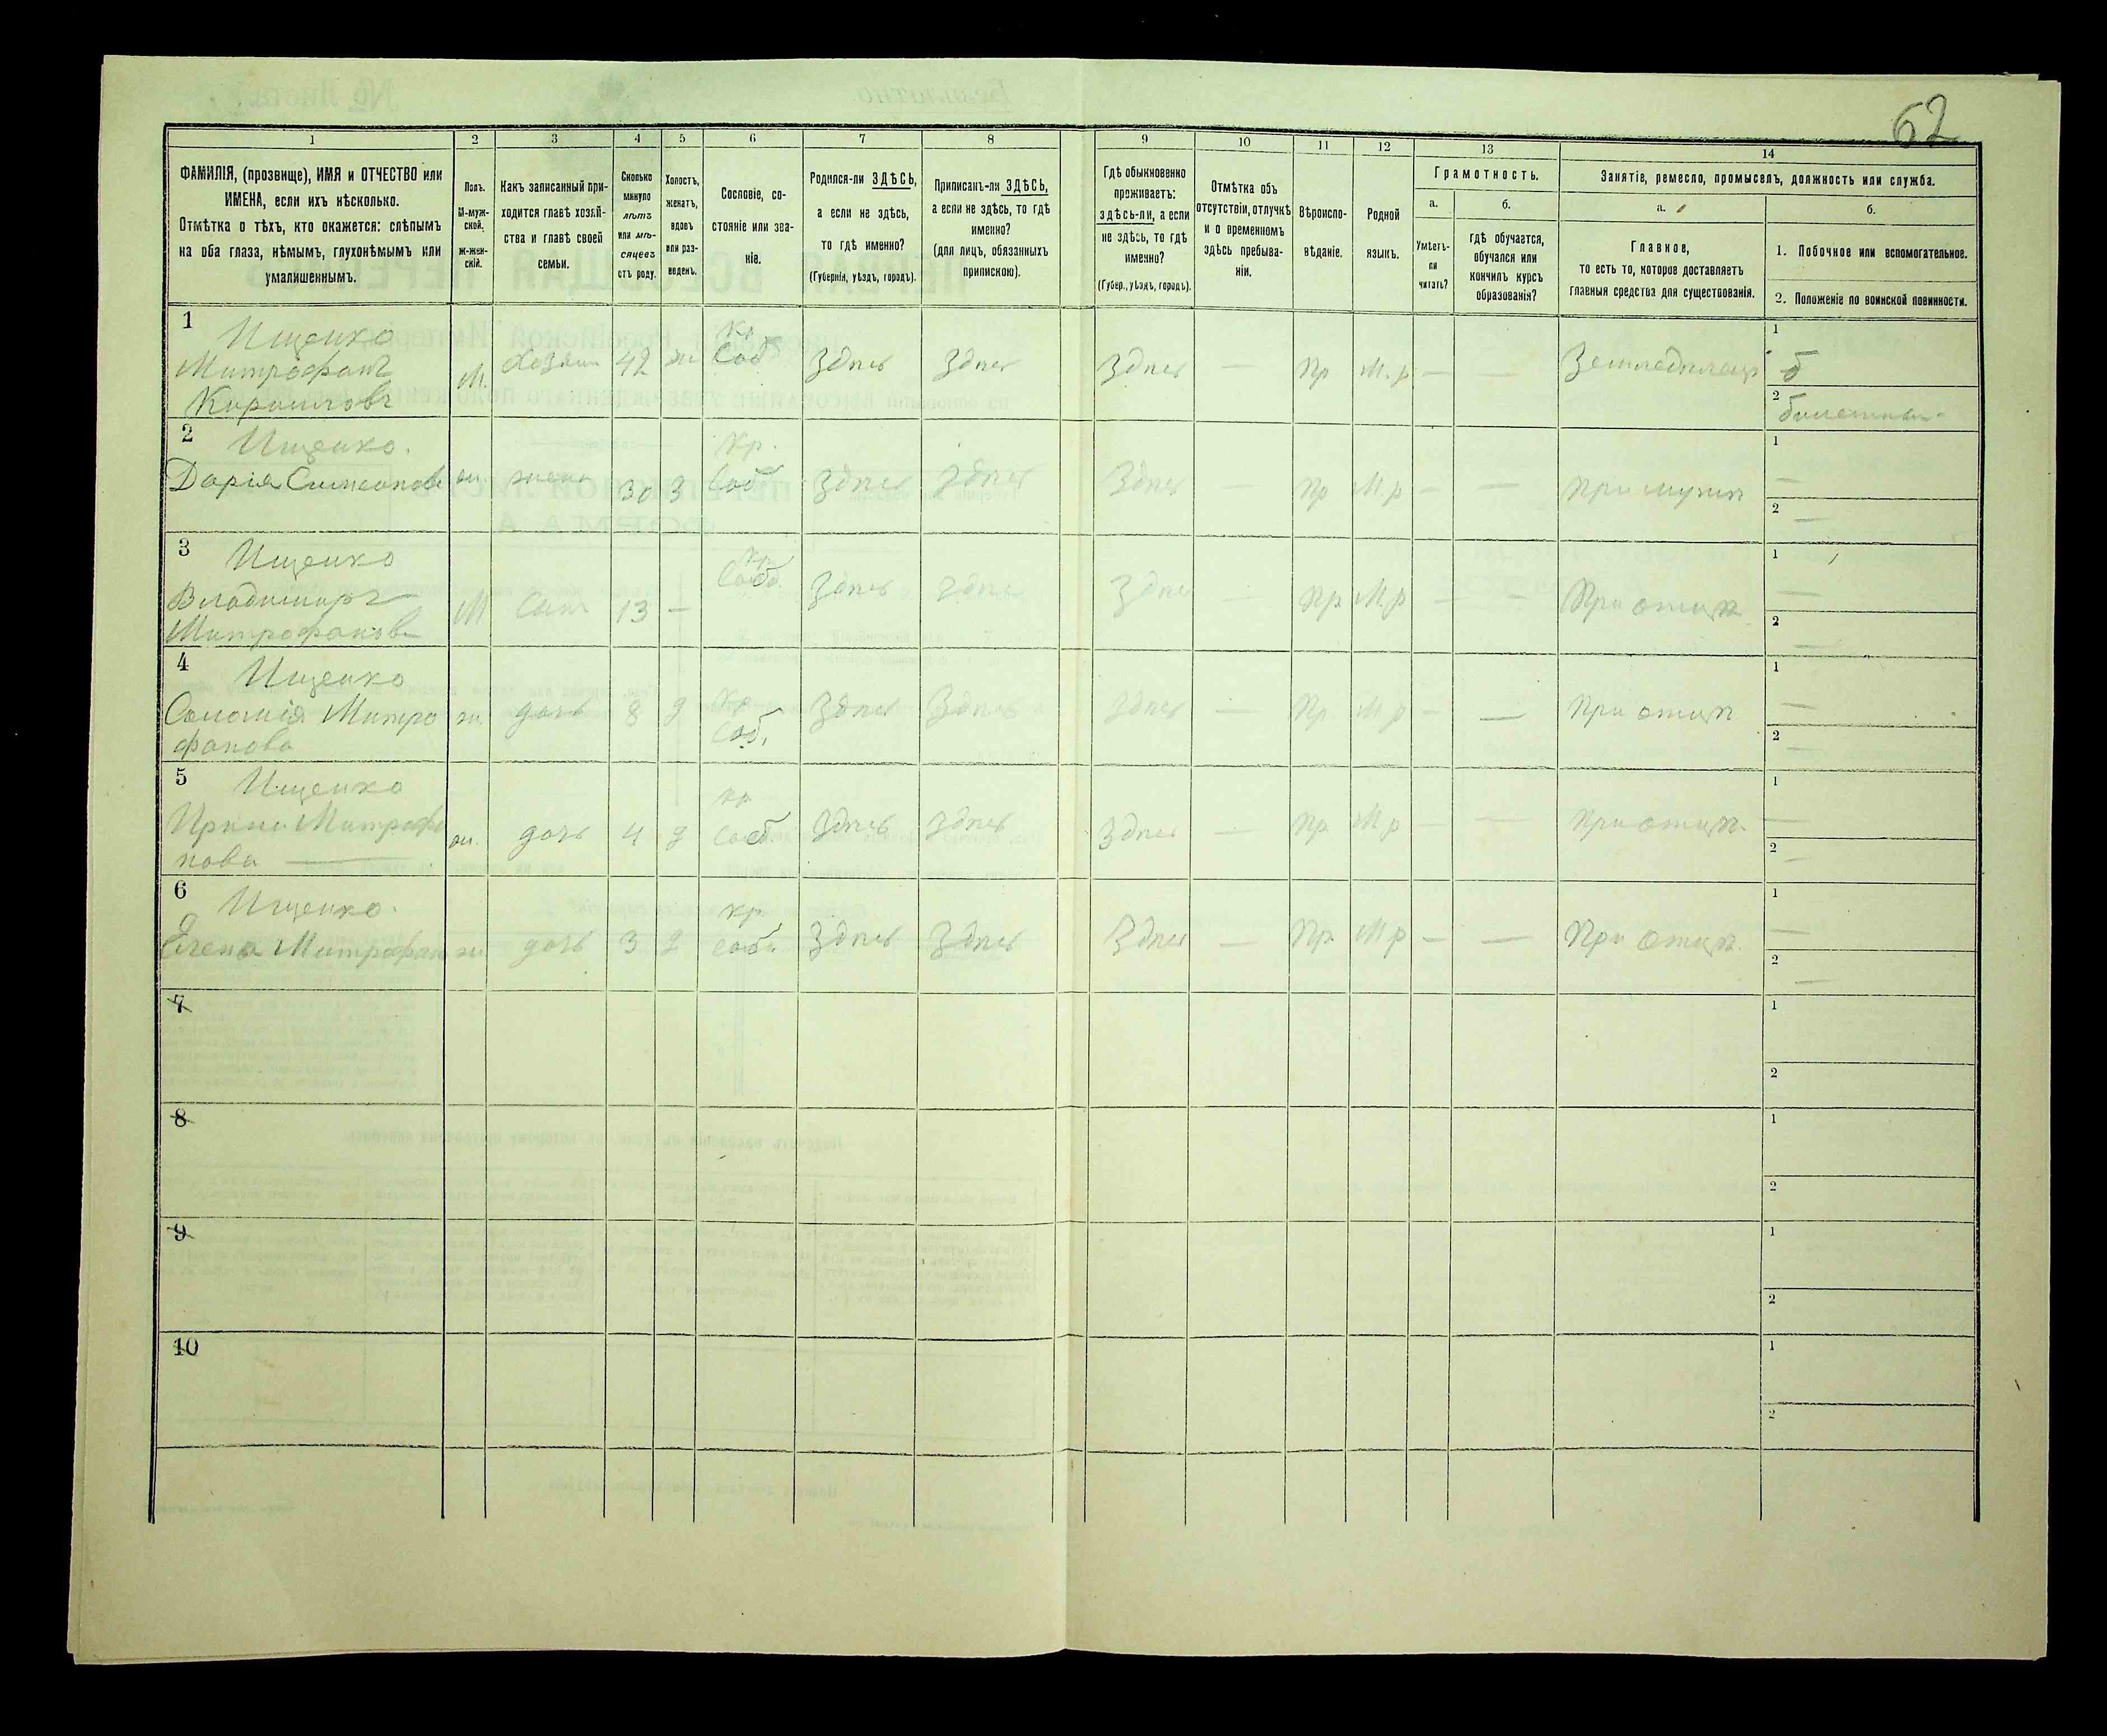 62
1 2 3 4 5 6 7 8 9 10 11 12 13 14
ФАМИЛІЯ, (прозвище), ИМЯ и ОТЧЕСТВО или
ИМЕНА, если ихъ нѣсколько.
Отмѣтка о тѣхъ, кто окажется: слѣпымъ
на оба глаза, нѣмымъ, глухонѣмымъ или
умалишеннымъ.
Полъ.
М-муж-
ской.
ж-жен-
скій.
Какъ записанный при-
ходится главѣ хозяй-
ства и главѣ своей
семьи.
Сколько
минуло
лѣтъ
или мѣ-
сяцевъ
отъ роду.
Холостъ,
женатъ,
вдовъ
или раз-
веденъ.
Сословіе, со-
стояніе или зва-
ніе.
Родился-ли ЗДѢСЬ,
а если не здѣсь,
то гдѣ именно?
(Губернія, уѣздъ, городъ).
Приписанъ-ли ЗДѢСЬ,
а если не здѣсь, то гдѣ
именно?
(для лицъ, обязанныхъ
припискою).
Гдѣ обыкновенно
проживаетъ:
здѣсь-ли, а если
не здѣсь, то гдѣ
именно?
(Губер., уѣздъ, городъ).
Отмѣтка объ
отсутствіи, отлучкѣ
и о временномъ
здѣсь пребыва-
ніи.
Вѣроиспо-
вѣданіе.
Родной
языкъ.
Грамотность.
а.
Умѣетъ-
ли
читать?
б.
гдѣ обучается,
обучался или
кончилъ курсъ
образованія?
Занятіе, ремесло, промыселъ, должность или служба.
а.
Главное,
то есть то, которое доставляетъ
главныя средства для существованія.
б.
1. Побочное или вспомогательное.
2. Положеніе по воинской повинности.
1 Ищенко
Митрофанъ
Кириловъ
М. Хозяин 42 ж Кр Соб Здѣсь Здѣсь Здѣсь — Пр М.р — — Земледѣлец
1 б
2
2 Ищенко.
Дарія Симеонове
ж. жена 30 З Кр. Соб Здѣсь Здѣсь Здѣсь — Пр М р — — При мужѣ
1 —
2 —
3 Ищенко
Владимиръ
Митрофанов
М Сынъ 13 — Кр Собс. Здѣсь Здѣсь Здѣсь — Пр М.р — — При отцѣ
1 —
2 —
4 Ищенко
Соломія Митро
фанова
ж. дочь 8 д Кр Соб. Здѣсь Здѣсь Здѣсь — Пр. М р — — При отцѣ
1 —
2 —
5 Ищенко
Ирина Митрофа
нова —
ж. дочь 4 д кр Собс. Здѣсь Здѣсь Здѣсь — Пр М р — — При отцѣ.
1 —
2 —
6 Ищенко.
Елена Митрофан
ж. дочь 3 д кр. собс Здѣсь Здѣсь Здѣсь — Пр. М р — — При отцѣ.
1 —
2 —
7
1
2
8
1
2
9
1
2
10
1
2